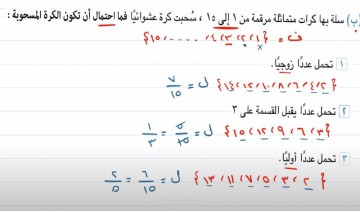 (ب) سلة بها كرات متماثلة مرقمة من ١ إلى ١٥ ، سُحبت كرة عشوائيًا فما احتمال أن تكون الكرة المسحوبة :
ف = {١، ٢، ٣، ٤، ........، ١٥}
١ تحمل عددًا زوجيًا.
{٢، ٤، ٦، ٨، ١٠، ١٢، ١٤} ل = ٧/١٥
٢ تحمل عددًا يقبل القسمة على ٣
{٣، ٦، ٩، ١٢، ١٥} ل = ٥/١٥ = ١/٣
٣ تحمل عددًا أوليًا.
{٢، ٣، ٥، ٧، ١١، ١٣} ل = ٦/١٥ = ٢/٥